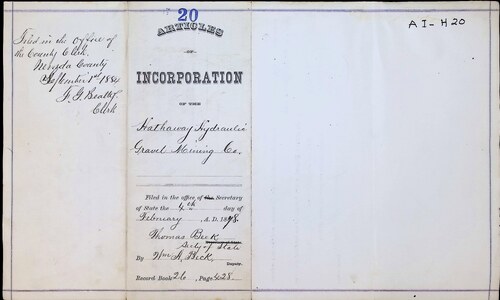 Filed in the office of
the County Clerk,
Nevada County
September 1st 1884
F. G. Beatty,
Clerk
20
ARTICLES
OF
INCORPORATION
OF THE
Hathaway Hydraulic
Gravel Mining Co.
Filed in the office of the Secretary
of State the 4th day of
February, A.D. 1878.
Thomas Beck
Secty of State
By Wm A. Beck.
Deputy.
Record Book 26, Page 428.
AI-H20